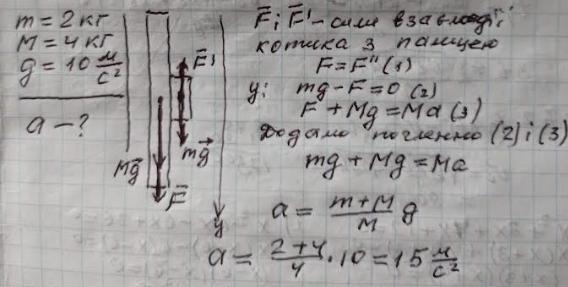 m = 2 кг
M = 4 кг
g = 10 м/с²
a - ?
F⃗'
mg⃗
Mg⃗
F⃗
y
F⃗ і F⃗' - сили взаємодії
котика з палицею
F = F'' (1)
y: mg - F = 0 (2)
F + Mg = Ma (3)
Додамо почленно (2) і (3)
mg + Mg = Ma
a = (m+M)/M g
a = (2+4)/4 · 10 = 15 м/с²